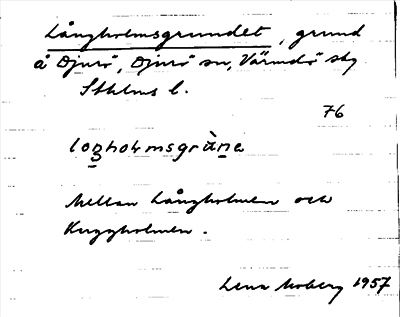 Långholmsgrundet, grund
å Djurö, Djurö sn, Värmdö skg
Sthlms l.
76
Mellan Långholmen och
Kuggholmen.
Lena Moberg 1957